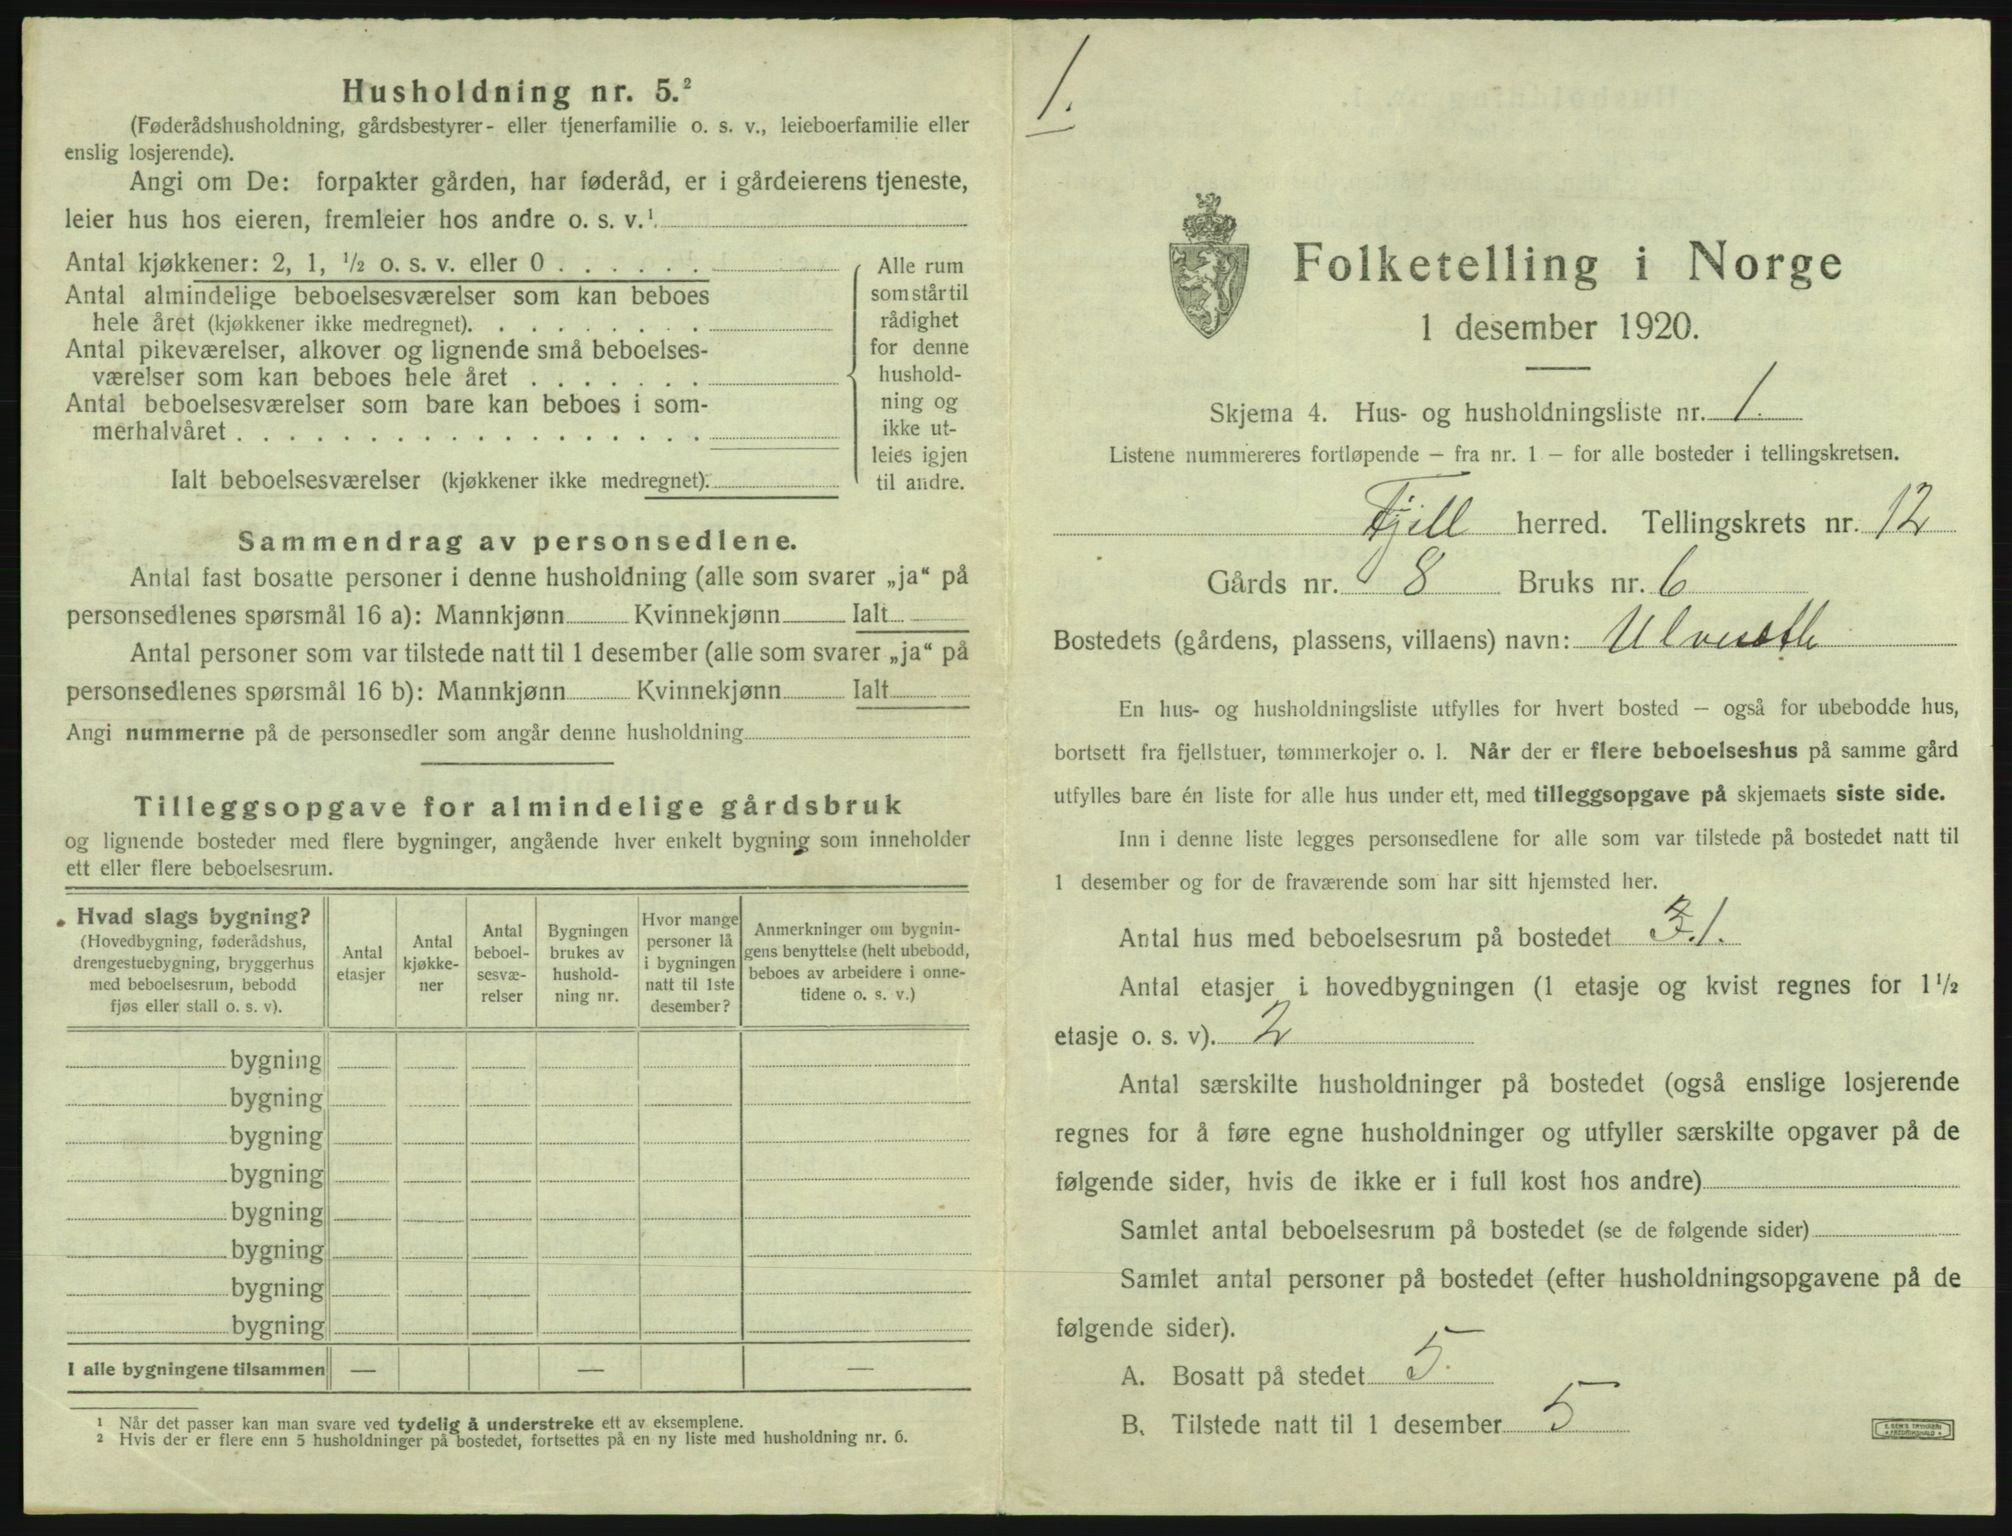 Husholdning nr. 5.²
(Føderådshusholdning, gårdsbestyrer- eller tjenerfamilie o. s. v., leieboerfamilie eller
enslig losjerende).
Angi om De: forpakter gården, har føderåd, er i gårdeierens tjeneste,
leier hus hos eieren, fremleier hos andre o. s. v.¹
Antal kjøkkener: 2, 1, ½ o. s. v. eller 0 . . . . . .
Antal almindelige beboelsesværelser som kan beboes
hele året (kjøkkener ikke medregnet). . . . . . . . .
Antal pikeværelser, alkover og lignende små beboelses-
værelser som kan beboes hele året . . . . . . .
Antal beboelsesværelser som bare kan beboes i som-
merhalvåret . . . . . . . . . . . . . . . . . .
Ialt beboelsesværelser (kjøkkener ikke medregnet).
Alle rum
som står til
rådighet
for denne
hushold-
ning og
ikke ut-
leies igjen
til andre.
Sammendrag av personsedlene.
Antal fast bosatte personer i denne husholdning (alle som svarer „ja“ på
personsedlenes spørsmål 16 a): Mannkjønn Kvinnekjønn Ialt
Antal personer som var tilstede natt til 1 desember (alle som svarer „ja“ på
personsedlenes spørsmål 16 b): Mannkjønn Kvinnekjønn Ialt
Angi nummerne på de personsedler som angår denne husholdning
Tilleggsopgave for almindelige gårdsbruk
og lignende bosteder med flere bygninger, angående hver enkelt bygning som inneholder
ett eller flere beboelsesrum.
Hvad slags bygning?
(Hovedbygning, føderådshus,
drengestuebygning, bryggerhus
med beboelsesrum, bebodd
fjøs eller stall o. s. v).
Antal
etasjer
Antal
kjøkke-
ner
Antal
beboel-
sesvæ-
relser
Bygningen
brukes av
hushold-
ning nr.
Hvor mange
personer lå
i bygningen
natt til 1ste
desember?
Anmerkninger om bygnin-
gens benyttelse (helt ubebodd,
beboes av arbeidere i onne-
tidene o. s. v.)
bygning
bygning
bygning
bygning
bygning
bygning
bygning
bygning
I alle bygningene tilsammen — — —
¹ Når det passer kan man svare ved tydelig å understreke ett av eksemplene.
² Hvis der er flere enn 5 husholdninger på bostedet, fortsettes på en ny liste med husholdning nr. 6.
1.
Folketelling i Norge
1 desember 1920.
Skjema 4. Hus- og husholdningsliste nr. 1.
Listene nummereres fortløpende – fra nr. 1 – for alle bosteder i tellingskretsen.
Fjell herred. Tellingskrets nr. 12
Gårds nr. 8 Bruks nr. 6
Bostedets (gårdens, plassens, villaens) navn:
En hus- og husholdningsliste utfylles for hvert bosted – også for ubebodde hus,
bortsett fra fjellstuer, tømmerkojer o. l. Når der er flere beboelseshus på samme gård
utfylles bare én liste for alle hus under ett, med tilleggsopgave på skjemaets siste side.
Inn i denne liste legges personsedlene for alle som var tilstede på bostedet natt til
1 desember og for de fraværende som har sitt hjemsted her.
Antal hus med beboelsesrum på bostedet 3.1.
Antal etasjer i hovedbygningen (1 etasje og kvist regnes for 1½
etasje o. s. v). 2
Antal særskilte husholdninger på bostedet (også enslige losjerende
regnes for å føre egne husholdninger og utfyller særskilte opgaver på de
følgende sider, hvis de ikke er i full kost hos andre)
Samlet antal beboelsesrum på bostedet (se de følgende sider)
Samlet antal personer på bostedet (efter husholdningsopgavene på de
følgende sider).
A. Bosatt på stedet 5.
B. Tilstede natt til 1 desember 5